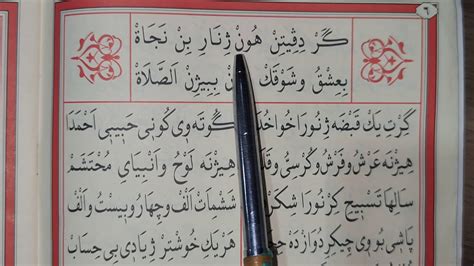 ٦
گَرْ دِڤێتِنْ هُونْ ژِنَارِ بِنْ نَجَاةْ
بِعِشْقُ وشَوْقَكْ بِبِيژِنْ اَلصَّلَاةْ
گِرْتِ يَكْ قَبْضَه ژِنُورَا خُوا گُوتَه وێ كُونِي حَبِيبِي اَحْمَدَا
هِيژِنَه عَرْشُ وفَرْشُ وكُرْسِي هِيژِنَه لَوْحُ وَاَنْبِيَايِ مُحْتَشَمْ
سَالِهَا تَسْبِيحْ كِرْ نُورَا شَشْمَانْ اَلْفْ وچَهَارْ وبِيسْتُ واَلْفْ
پَاشِي بُو وِي چِيكِرْ دُوازْدَه هَرْيَكْ خُوشْتِرْ ژِيَادِي بِي حِسَابْ